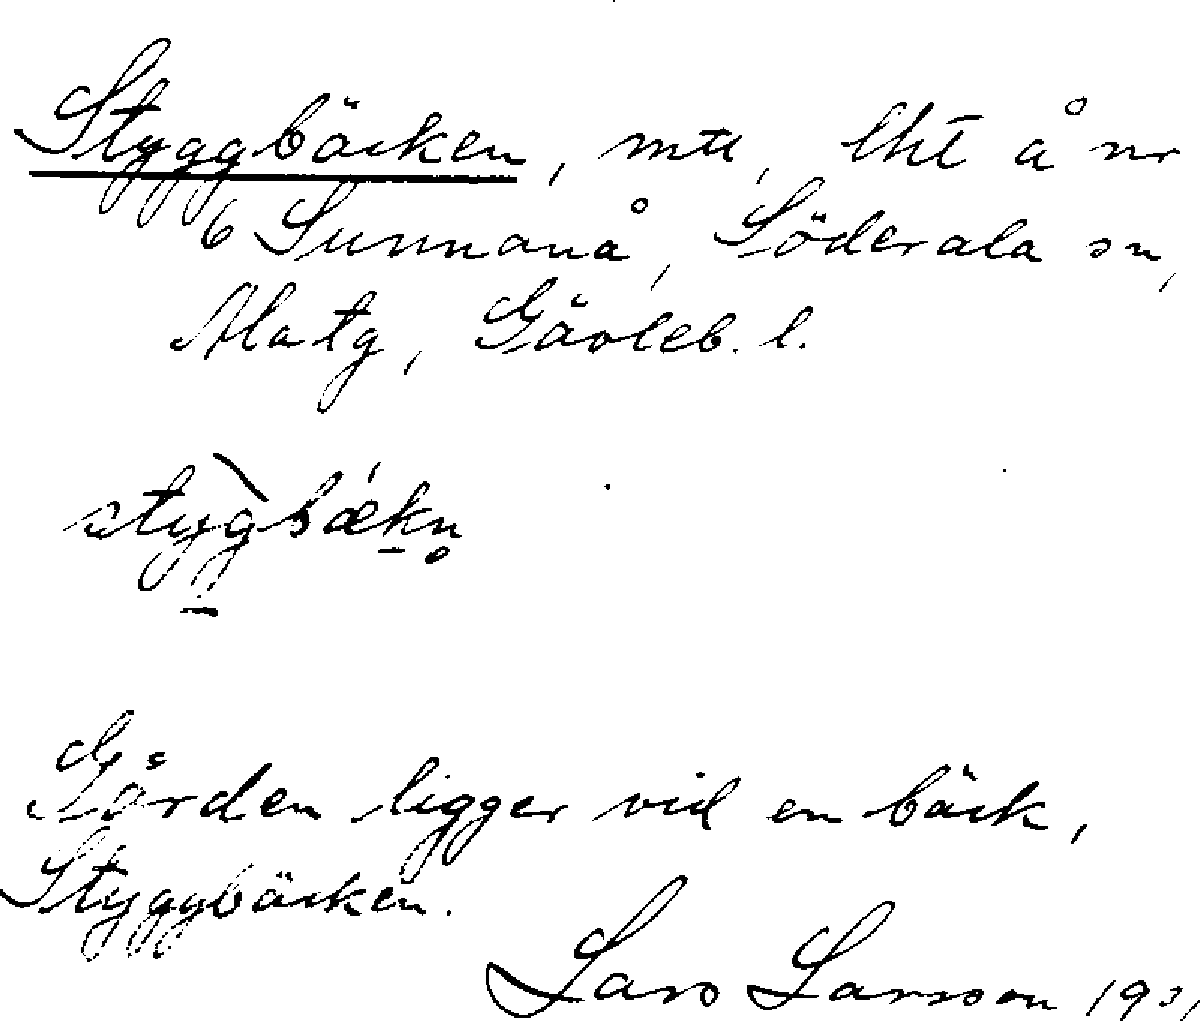 Styggbäcken, mtl, lht å nr
6 Sunnanå, Söderala sn,
Ala tg, Gävleb. l.
stygbækn̥
Gården ligger vid en bäck,
Styggbäcken.
Lars Larsson 1931